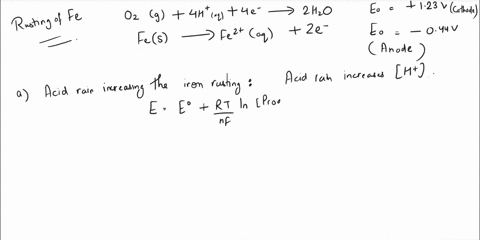 Rusting of Fe
O2 (g) + 4H+ (aq) + 4e- → 2H2O   Eo = + 1.23 V (Cathode)
Fe(s) → Fe2+ (aq) + 2e-   Eo = - 0.44 V
(Anode)
a) Acid rain increasing the iron rusting : Acid rain increases [H+].
E = E° + RT/nF ln [Prod